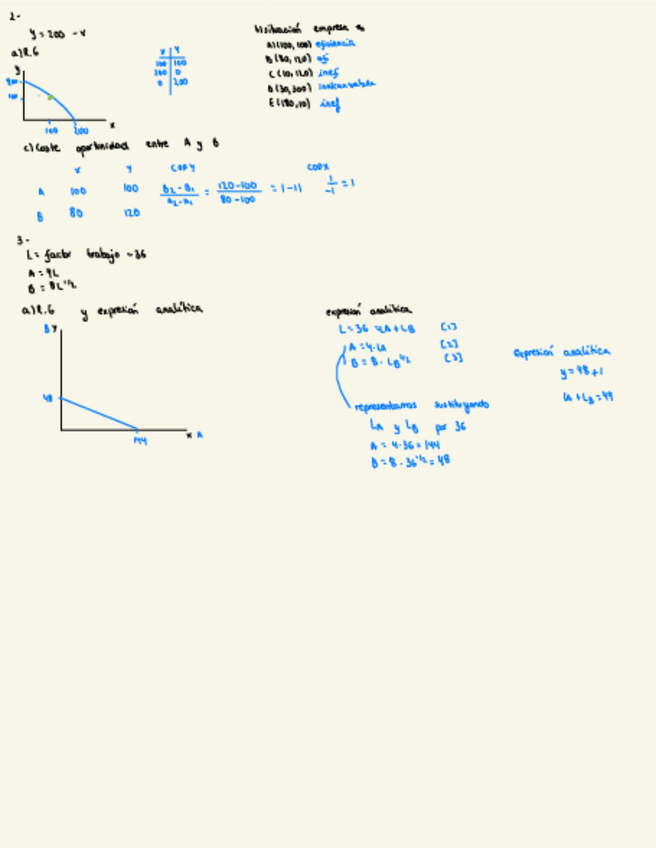 2-
y = 200 - x
a) R.G
y
200
100
100 200
x
x y
100 100
200 0
0 200
b) situación empresa
A (100, 100) eficiencia
B (80, 120) efi
C (10, 120) inef
D (30, 300) inalcanzable
E (180, 10) inef
c) Coste oportunidad entre A y B
x y COPY COPX
A 100 100 B₂-B₁ / A₂-A₁ = 120-100 / 80-100 = |-1| 1/-1 = 1
B 80 120
3-
L = factor trabajo = 36
A = 4L
B = 8L^1/2
a) R.G y expresión analítica
B y
48
144
x A
expresión analítica
L = 36 = LA + LB [1]
A = 4·LA [2]
B = 8·LB^1/2 [3]
representamos sustituyendo
LA y LB por 36
A = 4·36 = 144
B = 8·36^1/2 = 48
Expresión analítica
LA + LB =